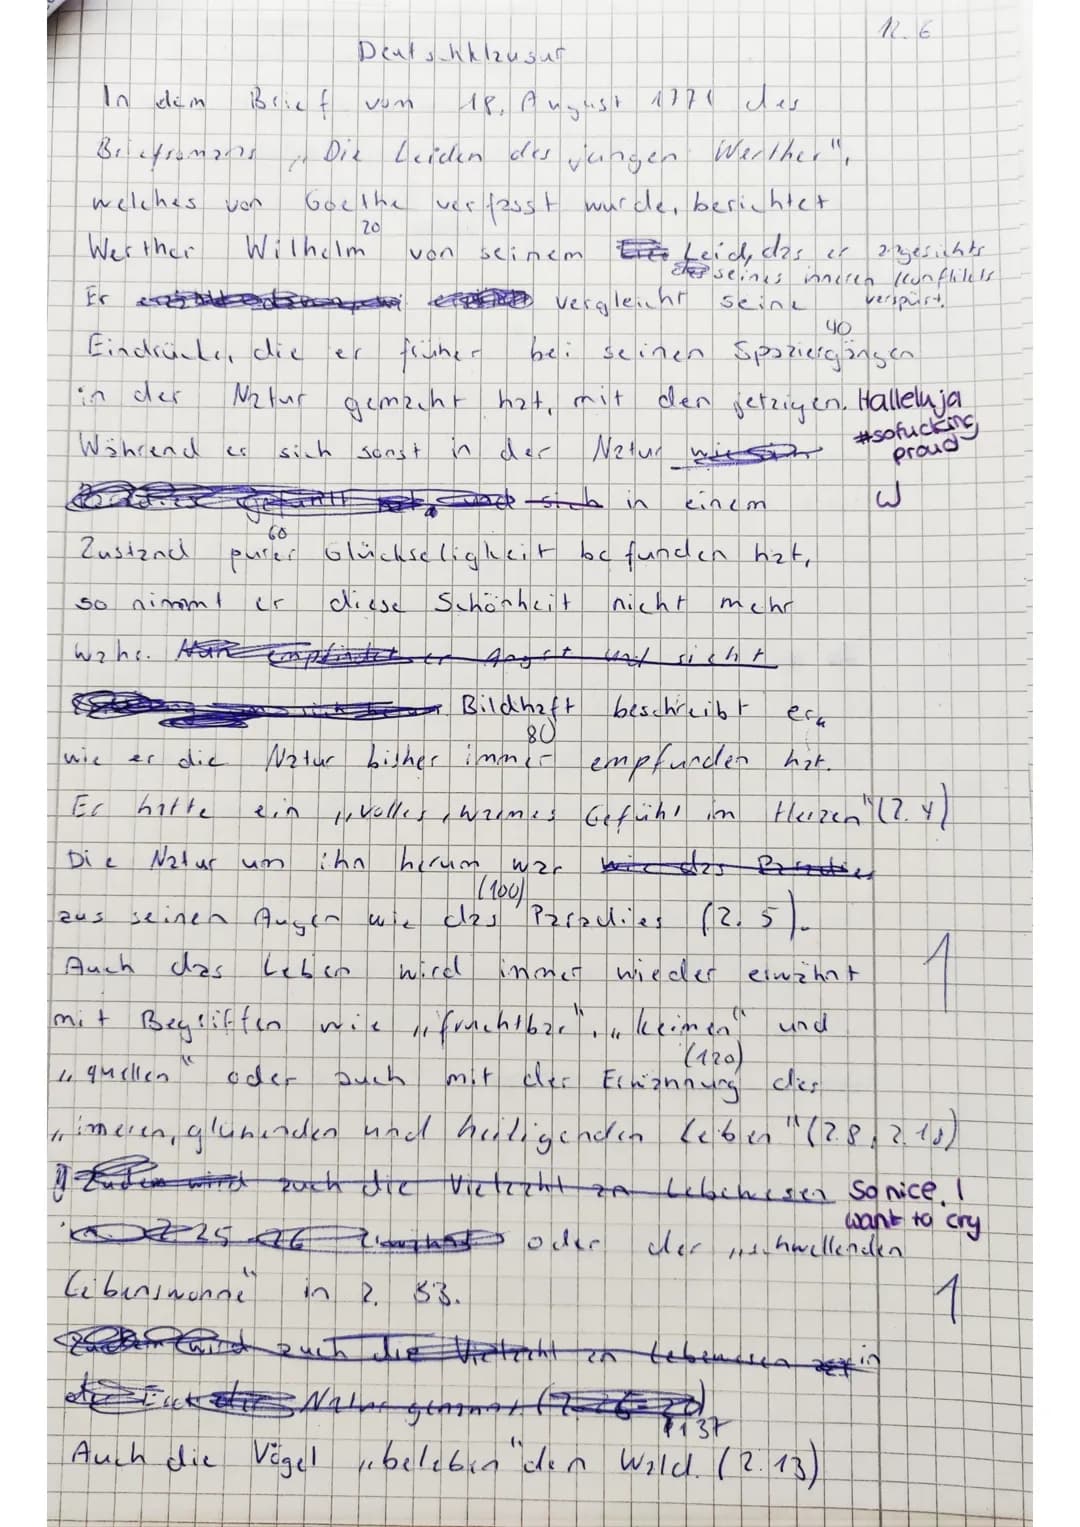 12.6
Deutschklausur
In dem Brief vom 18. August 1771 des
Briefromans „Die Leiden des jungen Werther",
welches von Goethe verfasst wurde, berichtet
20
Werther Wilhelm von seinem Leid, das er angesichts
seines inneren Konflikts
Er vergleicht seine verspürt.
40
Eindrücke, die er früher bei seinen Spaziergängen
in der Natur gemacht hat, mit den jetzigen. Halleluja
#sofucking
Während er sich sonst in der Natur
proud
und sich in einem
60
Zustand purer Glückseligkeit befunden hat,
so nimmt er diese Schönheit nicht mehr
wahr. Nun empfindet er Angst und sieht
Bildhaft beschreibt er,
80
wie er die Natur bisher immer empfunden hat.
Er hatte ein „volles, warmes Gefühl im Herzen" (Z. 4)
Die Natur um ihn herum war wie das Paradies
(100)
aus seinen Augen wie das Paradies (Z. 5).
Auch das Leben wird immer wieder erwähnt 1
mit Begriffen wie „fruchtbar", „keimen" und
(120)
„quellen" oder auch mit der Ernännung des
„inneren, glühenden und heiligenden Leben" (Z.8, Z.18)
Zudem wird auch die Vielzahl an Lebewesen So nice, I
want to cry
oder der „schwellenden
Lebenswonne" in Z. 53. 1
Zudem wird auch die Vielzahl an Lebewesen in
der Natur genannt
137
Auch die Vögel „beleben" den Wald. (Z. 13)